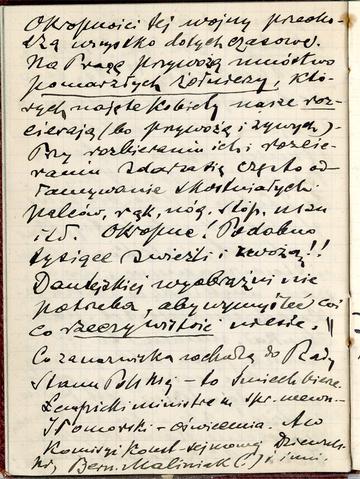 Okropności tej wojny przecho-
dzą wszystko dotychczasowe.
Na Pragę przywożą mnóstwo
pomarzłych żołnierzy, któ-
rych najęte kobiety nasze roz-
cierają (bo przywożą i żywych).
Przy rozbieraniu ich i rozcie-
raniu zdarza się często od-
łamywanie skostniałych
palców, rąk, nóg, stóp, uszu
itd. Okropne! Podobno
tysiące zwieźli i zwożą!!
Dantejskiej wyobraźni nie
potrzeba, aby wymyśleć coś
co rzeczywistość niesie.
Co za nazwiska wchodzą do Rady
Stanu Polskiej - to śmiech bierze.
Łempicki ministrem spr. wewn.
Pomorski - oświecenia. A w
Komisyi Konst. sejmowej
Bern. Maliniak (!) i inni.